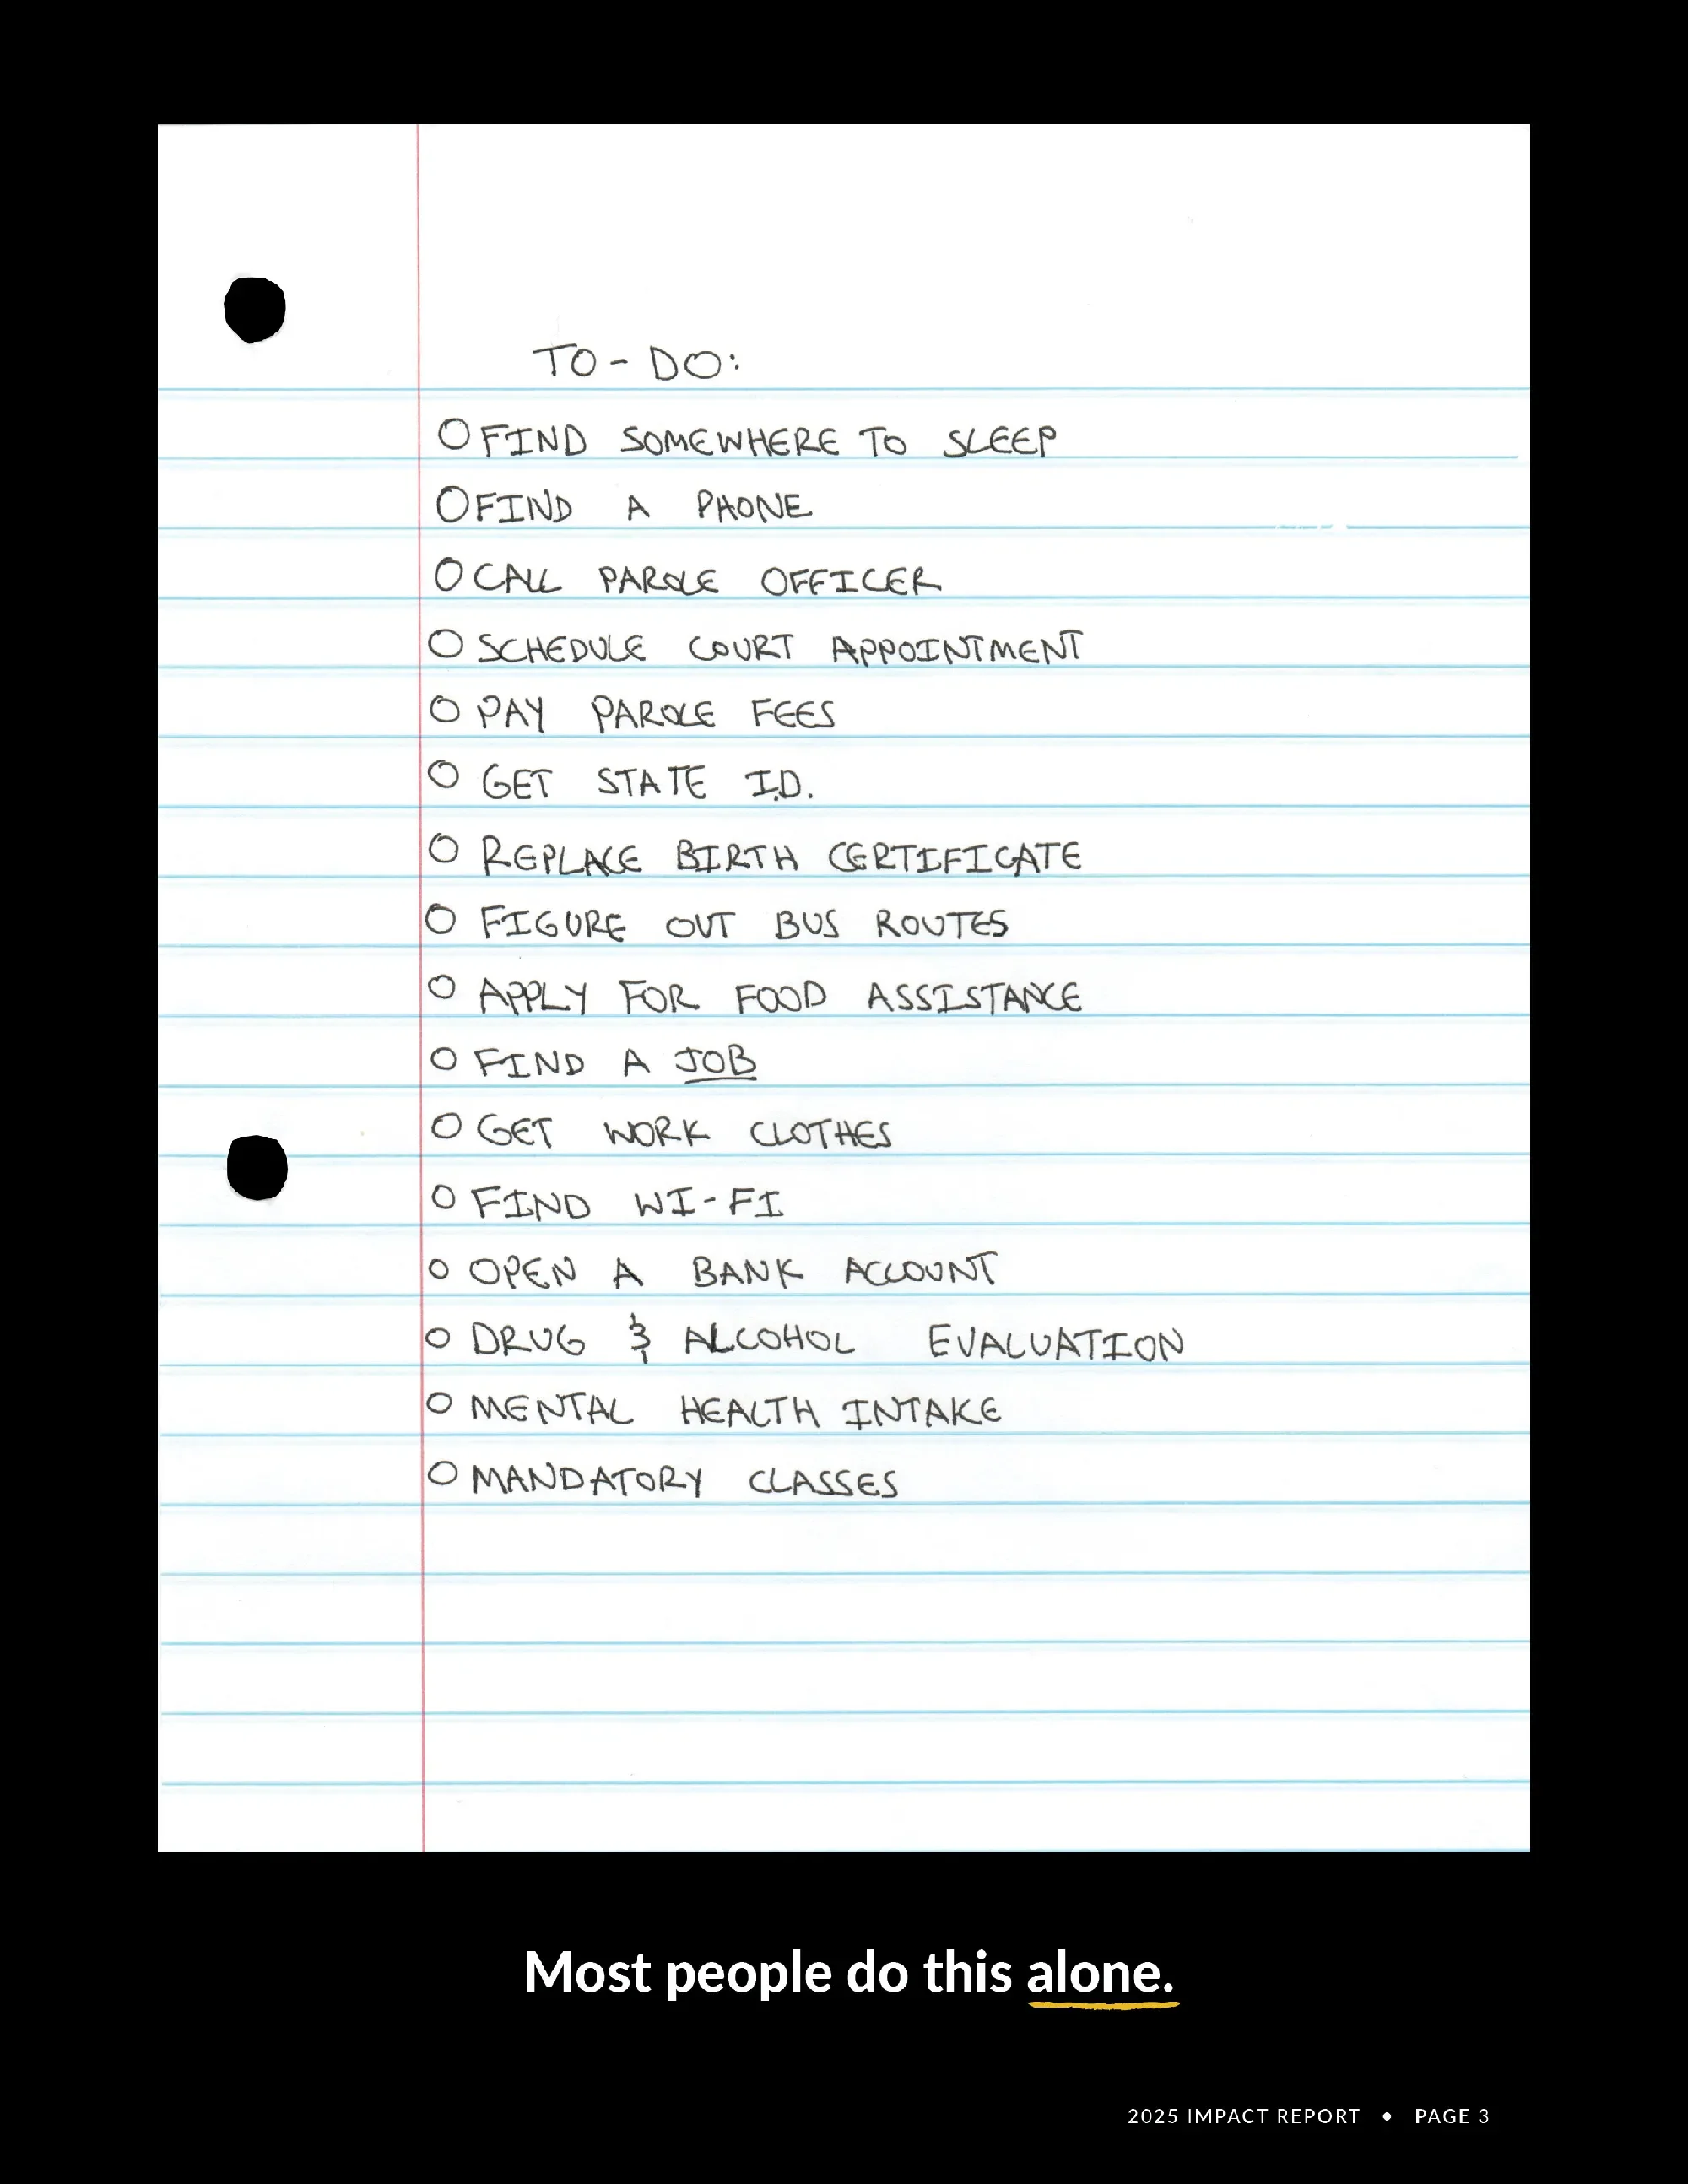 TO-DO:
FIND SOMEWHERE TO SLEEP
FIND A PHONE
CALL PAROLE OFFICER
SCHEDULE COURT APPOINTMENT
PAY PAROLE FEES
GET STATE I.D.
REPLACE BIRTH CERTIFICATE
FIGURE OUT BUS ROUTES
APPLY FOR FOOD ASSISTANCE
FIND A JOB
GET WORK CLOTHES
FIND WI-FI
OPEN A BANK ACCOUNT
DRUG & ALCOHOL EVALUATION
MENTAL HEALTH INTAKE
MANDATORY CLASSES
Most people do this alone.
2025 IMPACT REPORT • PAGE 3